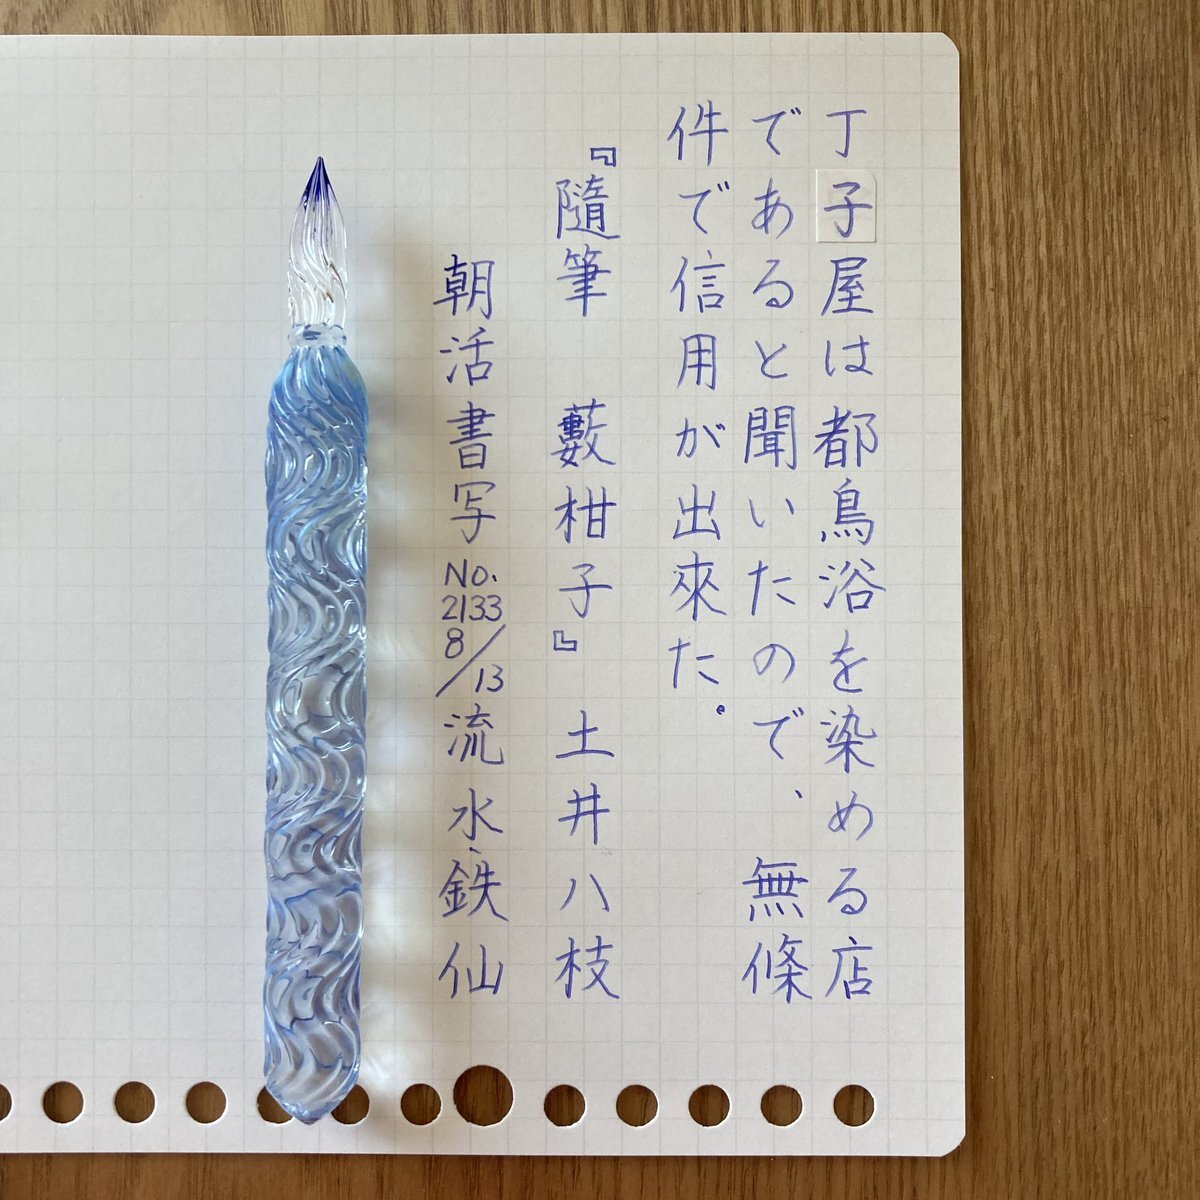 丁子屋は都鳥浴を染める店
であると聞いたので、無條
件で信用が出來た。
『隨筆　藪柑子』土井八枝
朝活書写No.2133 8/13流水、鉄仙